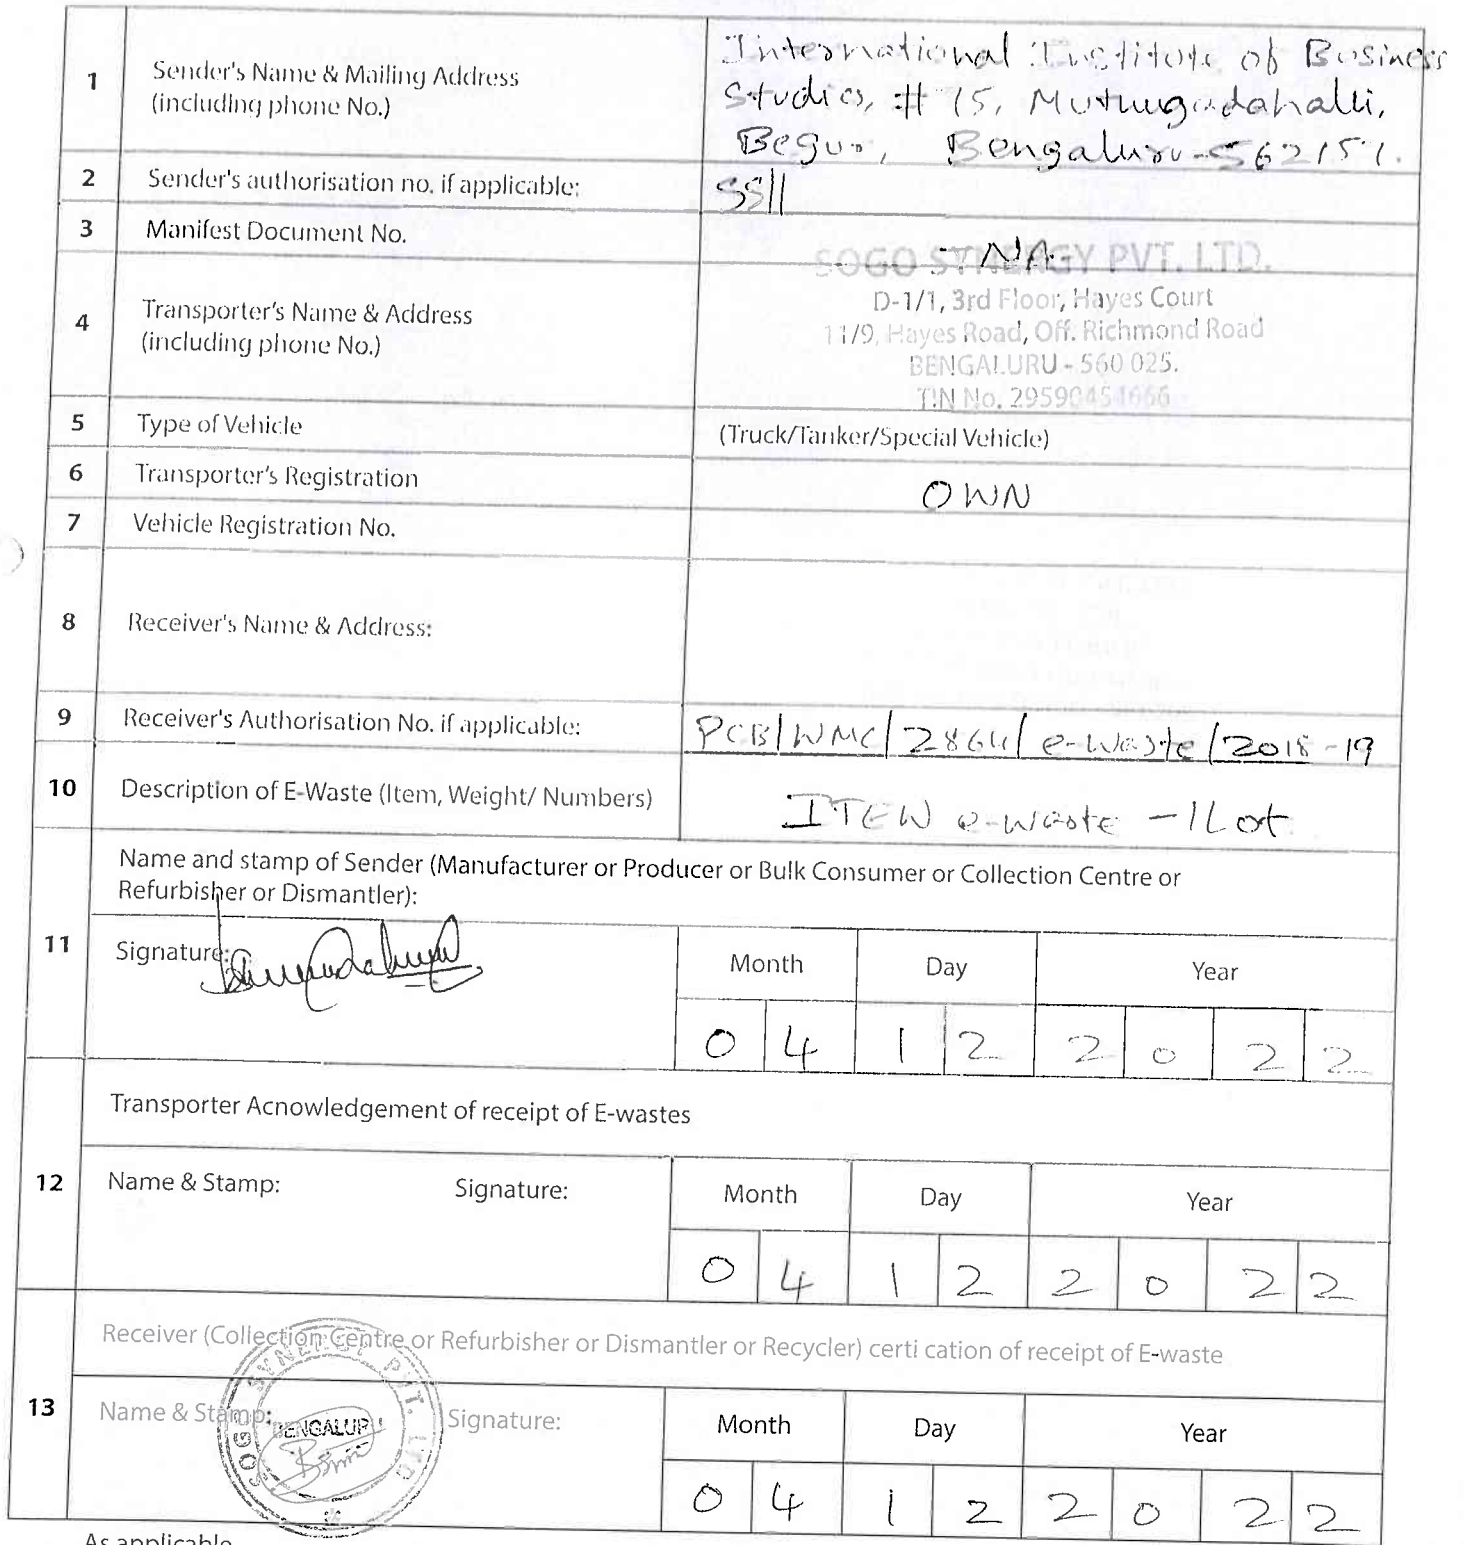 1 Sender's Name & Mailing Address
(including phone No.)
International Institute of Business
Studies, # 75, Muthugadahalli,
Begur, Bengaluru-562157.
2 Sender's authorisation no. if applicable:
SS||
3 Manifest Document No.
- NA -
4 Transporter's Name & Address
(including phone No.)
SOGO SYNERGY PVT. LTD.
D-1/1, 3rd Floor, Hayes Court
11/9, Hayes Road, Off. Richmond Road
BENGALURU - 560 025.
TIN No. 29590451666
5 Type of Vehicle (Truck/Tanker/Special Vehicle)
6 Transporter's Registration OWN
7 Vehicle Registration No.
8 Receiver's Name & Address:
9 Receiver's Authorisation No. if applicable: PCB/WMC/2864/e-waste/2018-19
10 Description of E-Waste (Item, Weight/ Numbers) ITEW e-waste - 1Lot
11 Name and stamp of Sender (Manufacturer or Producer or Bulk Consumer or Collection Centre or
Refurbisher or Dismantler):
Signature:
Month Day Year
0 4 1 2 2 0 2 2
12 Transporter Acnowledgement of receipt of E-wastes
Name & Stamp: Signature:
Month Day Year
0 4 1 2 2 0 2 2
13 Receiver (Collection Centre or Refurbisher or Dismantler or Recycler) certi cation of receipt of E-waste
Name & Stamp: Signature:
SOGO SYNERGY PVT. LTD.
BENGALURU
Month Day Year
0 4 1 2 2 0 2 2
As applicable